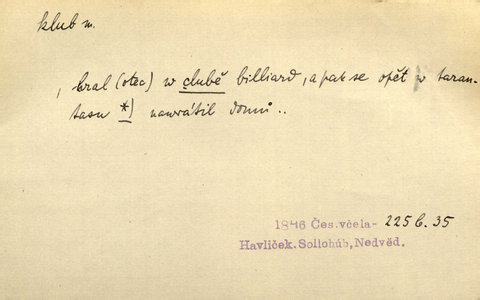 klub m.
, hral (otec) w clubě billiard, a pak se opět w taran-
tasu *) nawrátil domů..
1846 Čes. včela- 225 b. 35
Havlíček. Sollohúb, Nedvěd.